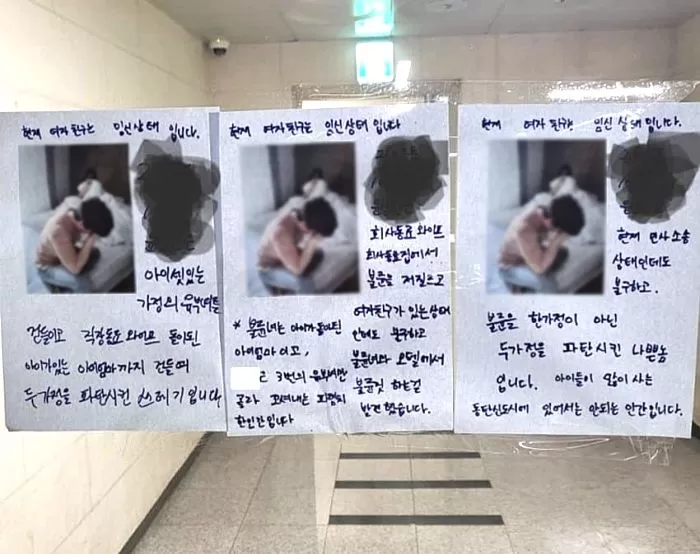 현재 여자친구는 임신상태 입니다.
아이셋있는
가정의 유부녀를
건들이고 직장동료 와이프 돌이된
아이가있는 아이엄마까지 건들며
두가정을 파탄시킨 쓰레기입니다
현재 여자친구는 임신상태 입니다
회사동료 와이프
회사동료집에서
불륜을 저질르고
여자친구가 있는상태
인데도 불구하고
불륜녀와 모텔에서
불륜짓 하는걸
발견했습니다.
* 불륜녀는 아이가돌이된
아이엄마 이고,
고 3번의 유부녀만
골라 꼬셔내는 파렴치
한인간입니다
현재 여자친구는 임신 상태 입니다.
현재 민사소송
상태인데도
불구하고.
불륜을 한가정이 아닌
두가정을 파탄시킨 나쁜놈
입니다. 아이들이 많이 사는
동탄신도시에 있어서는 안되는 인간입니다.